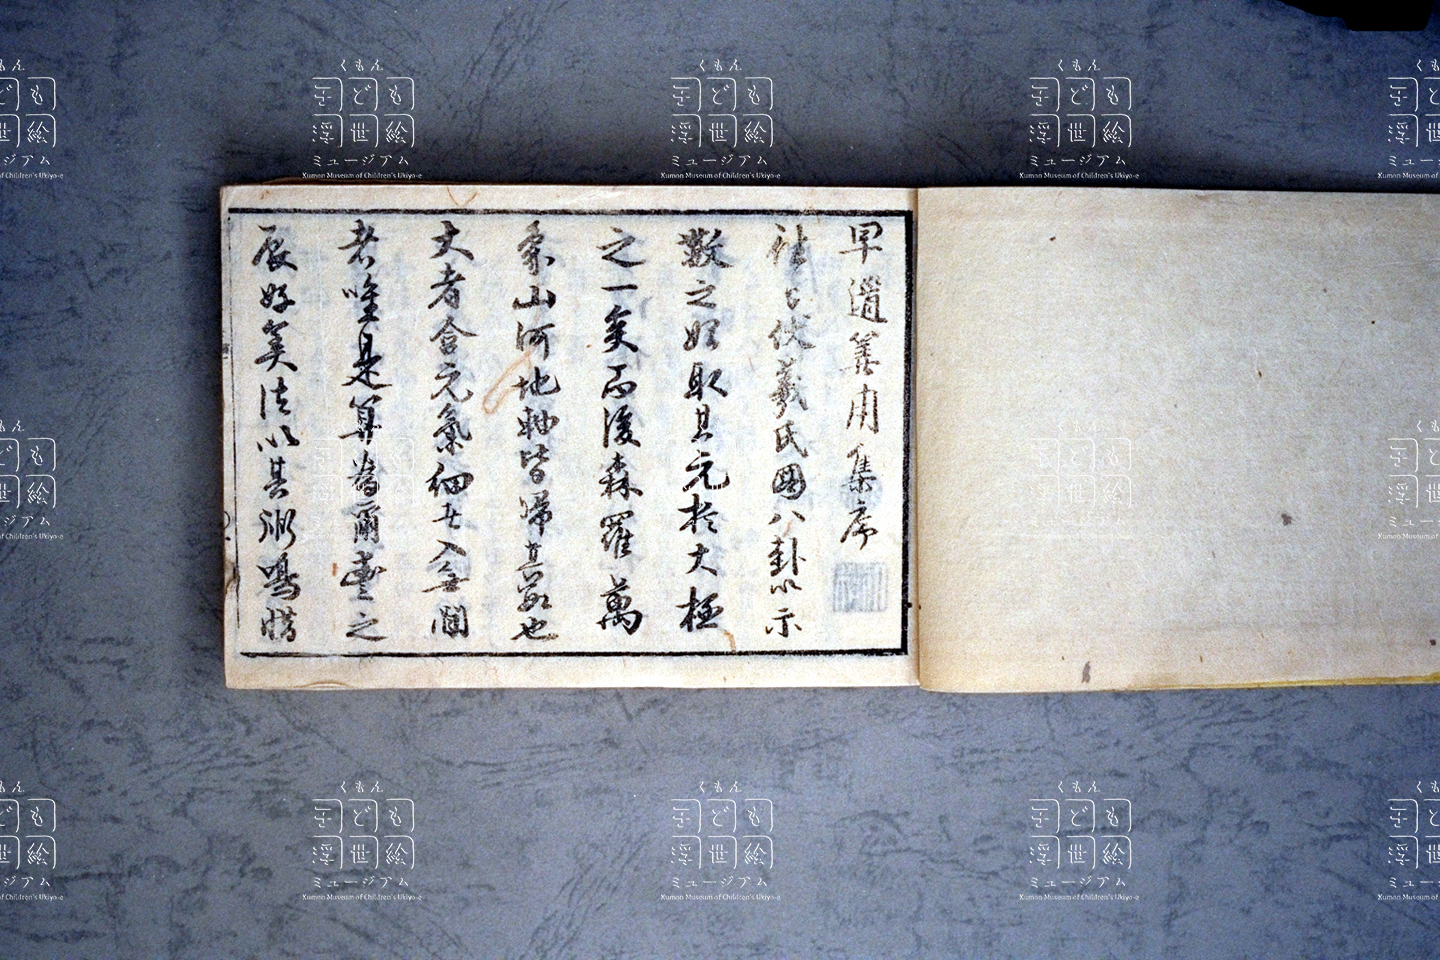 早道算用集序
往古伏羲氏画八卦以示
数之始取其元於大極
之一矣而後森羅萬
象山河地軸皆帰其数也
大者含元氣細者入無間
者唯是算為爾臺之
辰好矣法以其
くもん
子ども
浮世絵
ミュージアム
Kumon Museum of Children's Ukiyo-e